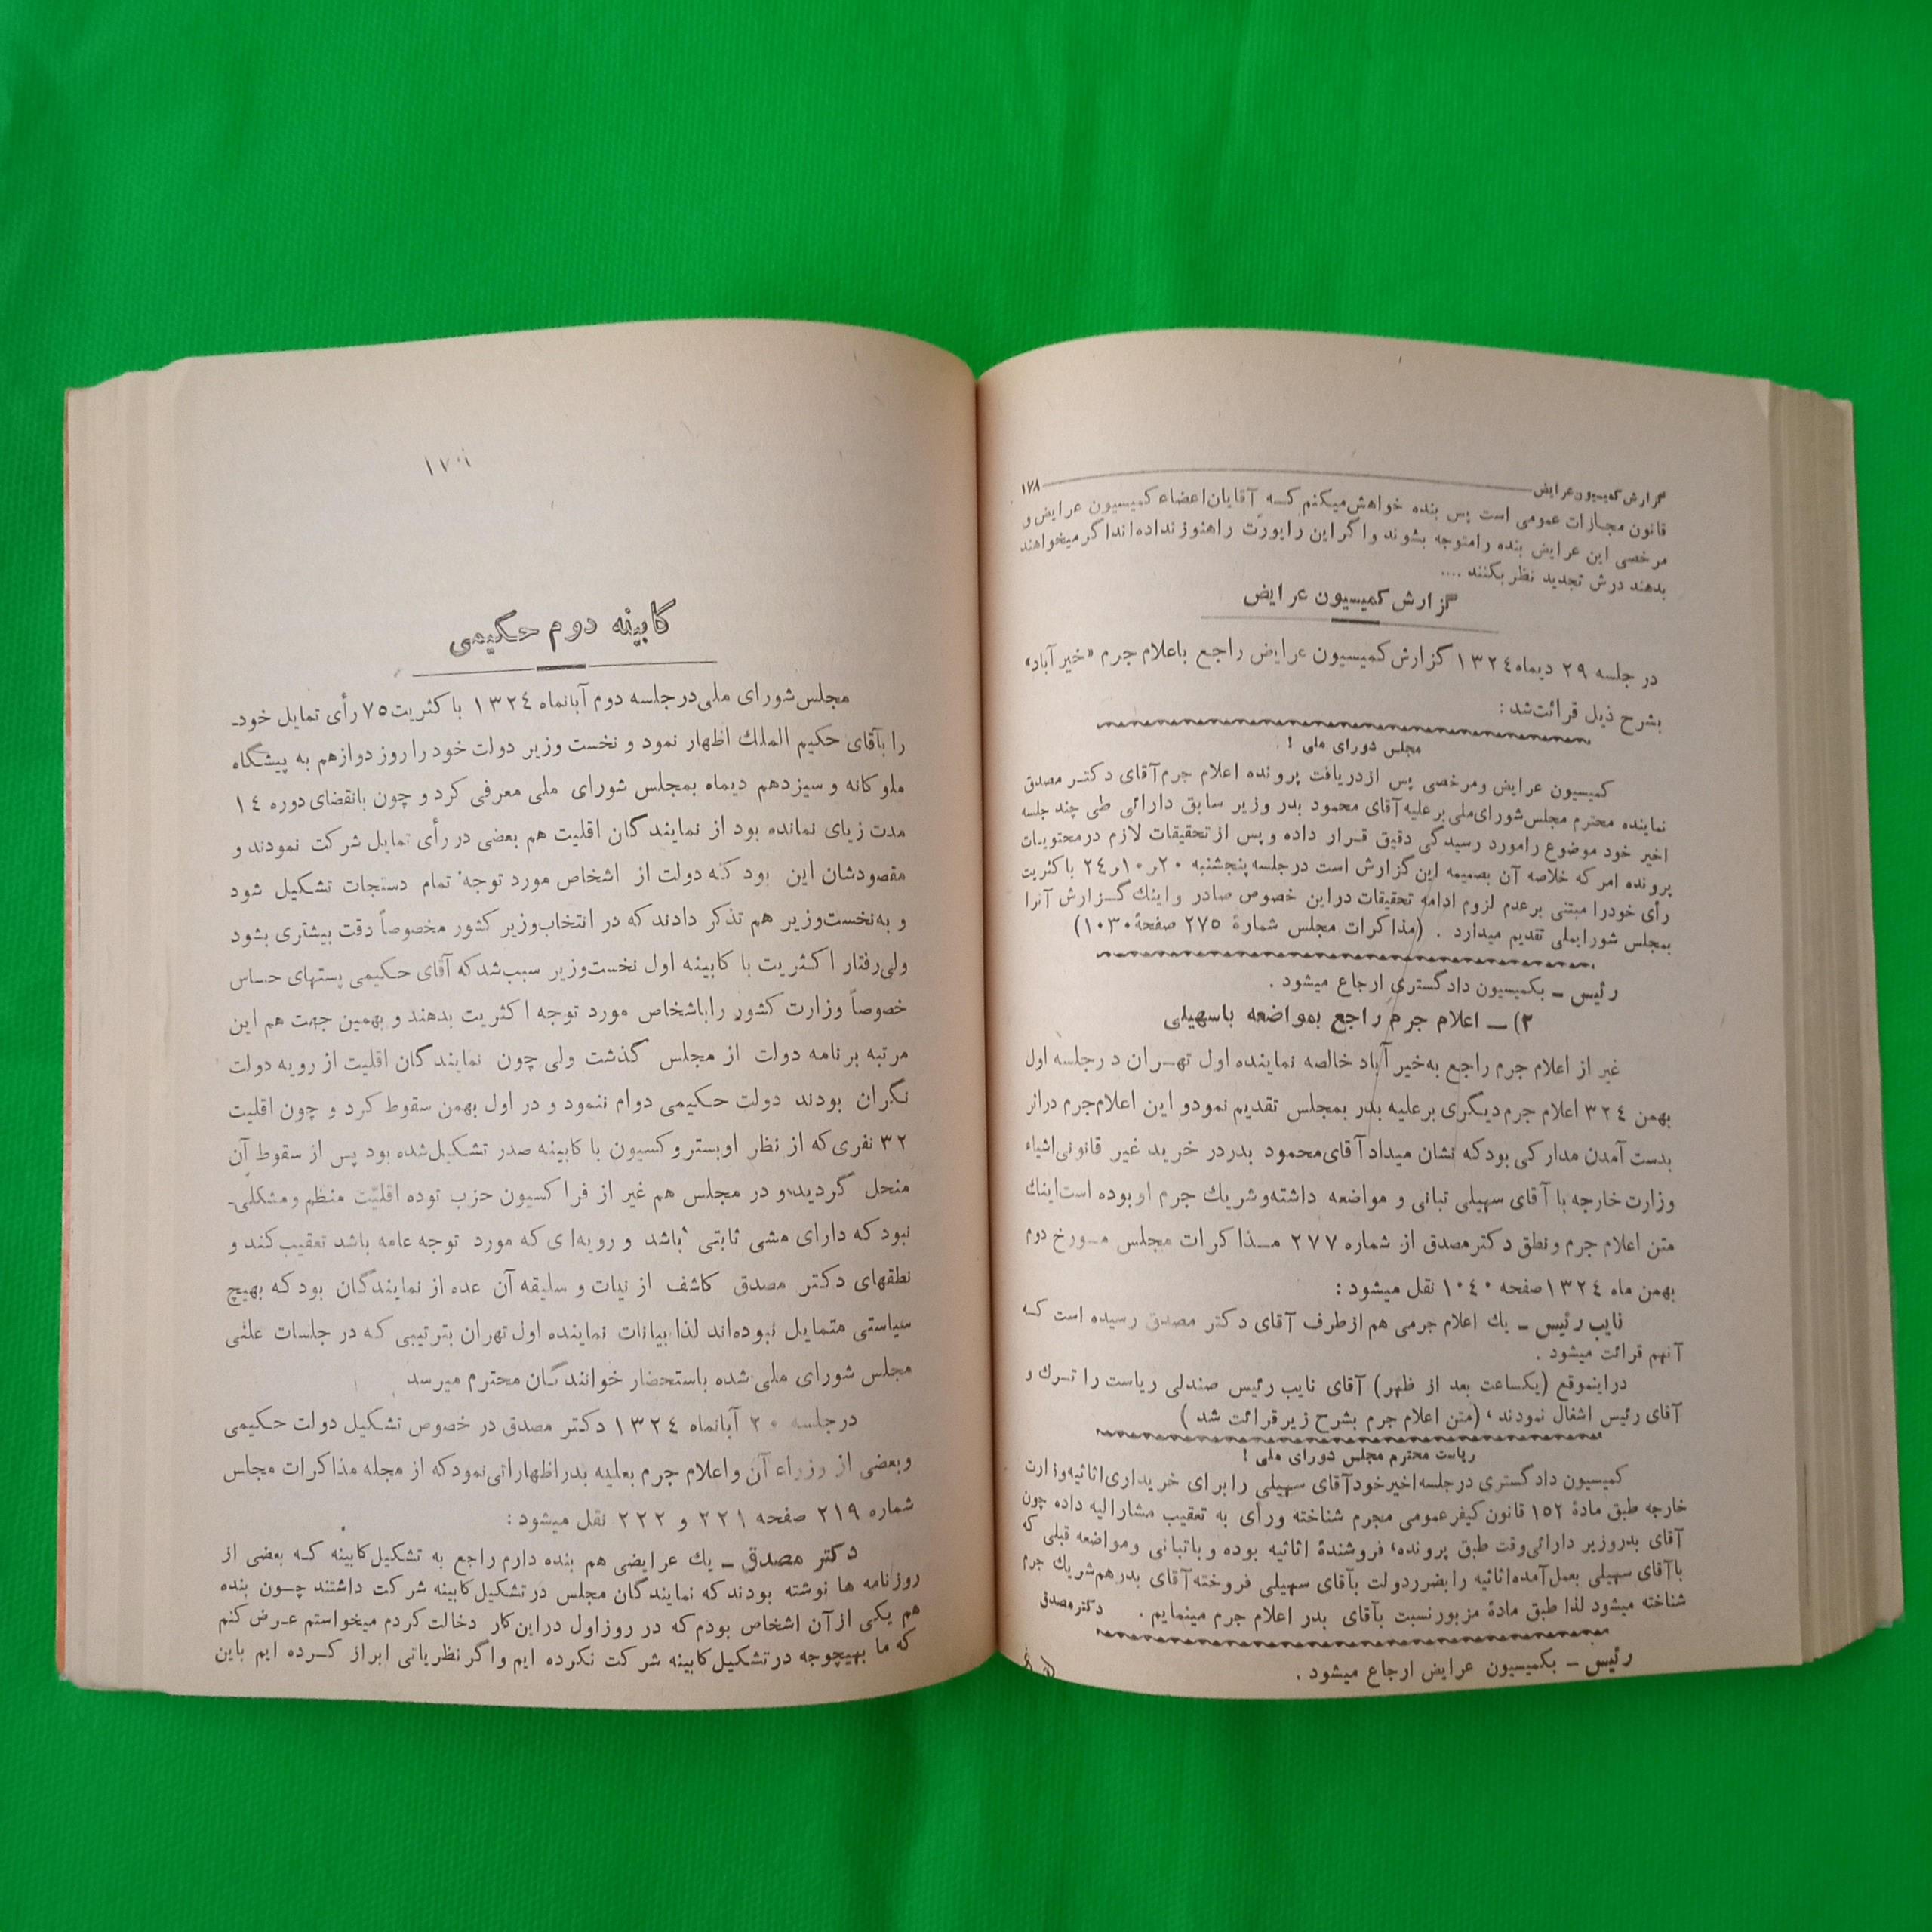 گزارش کمیسیون عرایض ۱۷۸
قانون مجازات عمومی است پس بنده خواهش میکنم که آقایان اعضاء کمیسیون عرایض و
مرخصی این عرایض بنده رامتوجه بشوند واگراین راپورت راهنوز نداده‌اند اگر میخواهند
بدهند درش تجدید نظر بکنند ....
گزارش کمیسیون عرایض
در جلسه ۲۹ دیماه ۱۳۲٤ گزارش کمیسیون عرایض راجع باعلام جرم «خیرآباد»
بشرح ذیل قرائت‌شد :
مجلس شورای ملی !
کمیسیون عرایض ومرخصی پس ازدریافت پرونده اعلام جرم آقای دکتر مصدق
نماینده محترم مجلس‌شورای‌ملی برعلیه آقای محمود بدر وزیر سابق دارائی طی چند جلسه
اخیر خود موضوع رامورد رسیدگی دقیق قرار داده وپس ازتحقیقات لازم درمحتویات
پرونده امر که خلاصه آن بضمیمه این گزارش است درجلسه پنجشنبه ۲۰ر۱۰ر۲٤ باکثریت
رأی خودرا مبتنی برعدم لزوم ادامه تحقیقات دراین خصوص صادر واینك گزارش آنرا
بمجلس شورایملی تقدیم میدارد . (مذاکرات مجلس شمارهٔ ۲۷۵ صفحهٔ ۱۰۳۰)
رئیس ــ بکمیسیون دادگستری ارجاع میشود .
۲) ــ اعلام جرم راجع بمواضعه باسهیلی
غیر از اعلام جرم راجع به‌خیر آباد خالصه نماینده اول تهران درجلسه اول
بهمن ۳۲٤ اعلام جرم دیگری برعلیه بدر بمجلس تقدیم نمودو این اعلام‌جرم دراثر
بدست آمدن مدارکی بودکه نشان میداد آقای‌محمود بدردر خرید غیر قانونی‌اشیاء
وزارت خارجه با آقای سهیلی تبانی و مواضعه داشته‌وشریك جرم اوبوده است‌اینك
متن اعلام جرم ونطق دکترمصدق از شماره ۲۷۷ مذاکرات مجلس مورخ دوم
بهمن ماه ۱۳۲٤ صفحه ۱۰٤۰ نقل میشود :
نایب رئیس ــ یك اعلام جرمی هم ازطرف آقای دکتر مصدق رسیده است که
آنهم قرائت میشود .
دراینموقع (یکساعت بعد از ظهر) آقای نایب رئیس صندلی ریاست را ترك و
آقای رئیس اشغال نمودند ، (متن اعلام جرم بشرح زیرقرائت شد )
ریاست محترم مجلس شورای ملی !
کمیسیون دادگستری درجلسه‌اخیرخودآقای سهیلی رابرای خریداری‌اثاثیه‌وزارت
خارجه طبق مادهٔ ۱۵۲ قانون کیفرعمومی مجرم شناخته ورأی به تعقیب مشارالیه داده چون
آقای بدروزیر دارائی‌وقت طبق پرونده، فروشندهٔ اثاثیه بوده وباتبانی ومواضعه قبلی که
باآقای سهیلی بعمل‌آمده‌اثاثیه رابضرردولت بآقای سهیلی فروخته‌آقای بدرهم‌شریك جرم
شناخته میشود لذا طبق مادهٔ مزبورنسبت بآقای بدر اعلام جرم مینمایم . دکترمصدق
رئیس ــ بکمیسیون عرایض ارجاع میشود .
کابینه دوم حکیمی
مجلس‌شورای ملی‌درجلسه دوم آبانماه ۱۳۲٤ باکثریت۷۵ رأی تمایل خود-
را بآقای حکیم الملك اظهار نمود و نخست وزیر دولت خود را روز دوازهم به پیشگاه
ملوکانه و سیزدهم دیماه بمجلس شورای ملی معرفی کرد و چون بانقضای دوره ۱٤
مدت زیای نمانده بود از نمایندگان اقلیت هم بعضی در رأی تمایل شرکت نمودند و
مقصودشان این بود که دولت از اشخاص مورد توجه تمام دستجات تشکیل شود
و به‌نخست‌وزیر هم تذکر دادند که در انتخاب‌وزیر کشور مخصوصاً دقت بیشتری بشود
ولی‌رفتار اکثریت با کابینه اول نخست‌وزیر سبب‌شدکه آقای حکیمی پستهای حساس
خصوصاً وزارت کشور راباشخاص مورد توجه اکثریت بدهند و بهمین جهت هم این
مرتبه برنامه دولت از مجلس گذشت ولی چون نمایندگان اقلیت از رویه دولت
نگران بودند دولت حکیمی دوام ننمود و در اول بهمن سقوط کرد و چون اقلیت
۳۲ نفری‌که از نظر اوبستروکسیون با کابینه صدر تشکیل‌شده بود پس از سقوط آن
منحل گردید و در مجلس هم غیر از فراکسیون حزب توده اقلیّت منظم ومشکلی-
نبود که دارای مشی ثابتی باشد و رویه‌ای که مورد توجه عامه باشد تعقیب‌کند و
نطقهای دکتر مصدق کاشف از نیات و سلیقه آن عده از نمایندگان بود که بهیچ
سیاستی متمایل نبوده‌اند لذا بیانات نماینده اول تهران بترتیبی که در جلسات علنی
مجلس شورای ملی شده باستحضار خوانندگان محترم میرسد
درجلسه ۲۰ آبانماه ۱۳۲٤ دکتر مصدق در خصوص تشکیل دولت حکیمی
وبعضی از وزراء آن واعلام جرم بعلیه بدراظهاراتی‌نمودکه از مجله مذاکرات مجلس
شماره ۲۱۹ صفحه ۲۲۱ و ۲۲۲ نقل میشود :
دکتر مصدق ــ یك عرایضی هم بنده دارم راجع به تشکیل‌کابینه که بعضی از
روزنامه ها نوشته بودندکه نمایندگان مجلس درتشکیل‌کابینه شرکت داشتند چون بنده
هم یکی ازآن اشخاص بودم‌که در روزاول دراین‌کار دخالت کردم میخواستم عرض کنم
که ما بهیچوجه درتشکیل‌کابینه شرکت نکرده ایم واگرنظریاتی ابراز کرده ایم باین